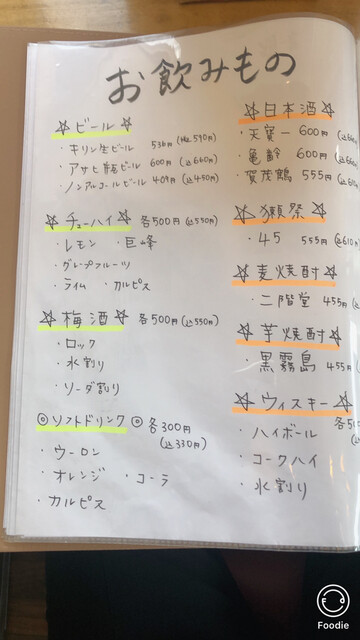 お飲みもの
☆ビール☆
・キリン生ビール 536円(税込590円)
・アサヒ瓶ビール 600円(込660円)
・ノンアルコールビール 409円(込450円)
☆チューハイ☆ 各500円(込550円)
・レモン ・巨峰
・グレープフルーツ
・ライム ・カルピス
☆梅酒☆ 各500円(込550円)
・ロック
・水割り
・ソーダ割り
◎ソフトドリンク◎ 各300円
(込330円)
・ウーロン
・オレンジ ・コーラ
・カルピス
☆日本酒☆
・天寶一 600円
・亀齢 600円
・賀茂鶴 555円
☆獺祭☆
・45 555円(込610
☆麦焼酎☆
・二階堂 455円
☆芋焼酎☆
・黒霧島 455円
☆ウィスキー☆
各50
・ハイボール
・コークハイ
・水割り
Foodie